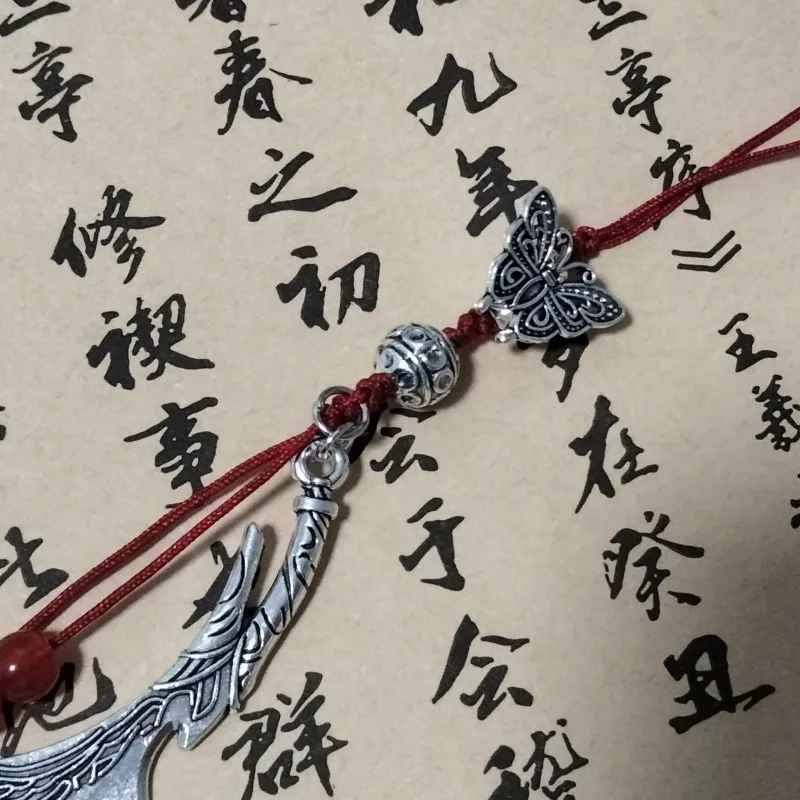 亭序》王羲
和九年岁在癸丑
春之初会于会稽
亭修禊事也群
此地